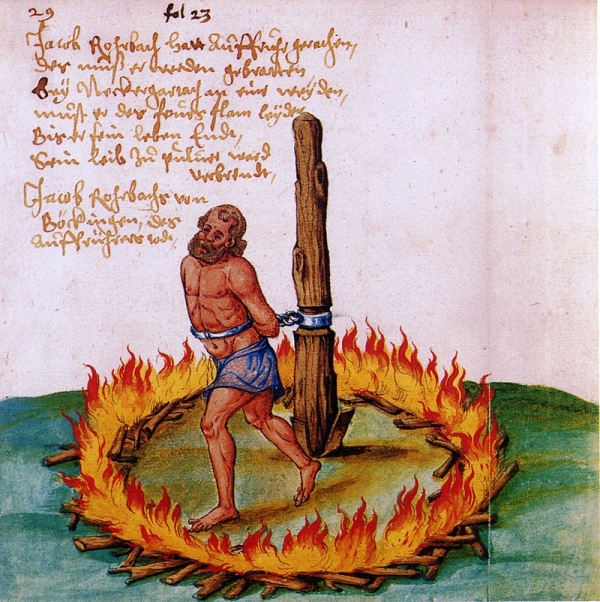 29
fol 23
Jacob Rohrbach hatt Auffruhr gerachen,
des must er werden gebratten
Bey Neckergartach an eine weyden,
must er des feurs flam leyden
Bis er sein leben Ende,
Sein leib zu puluer ward
verbrendt,
Jacob Rohrbachs von
Böckingen, des
Auffrührers